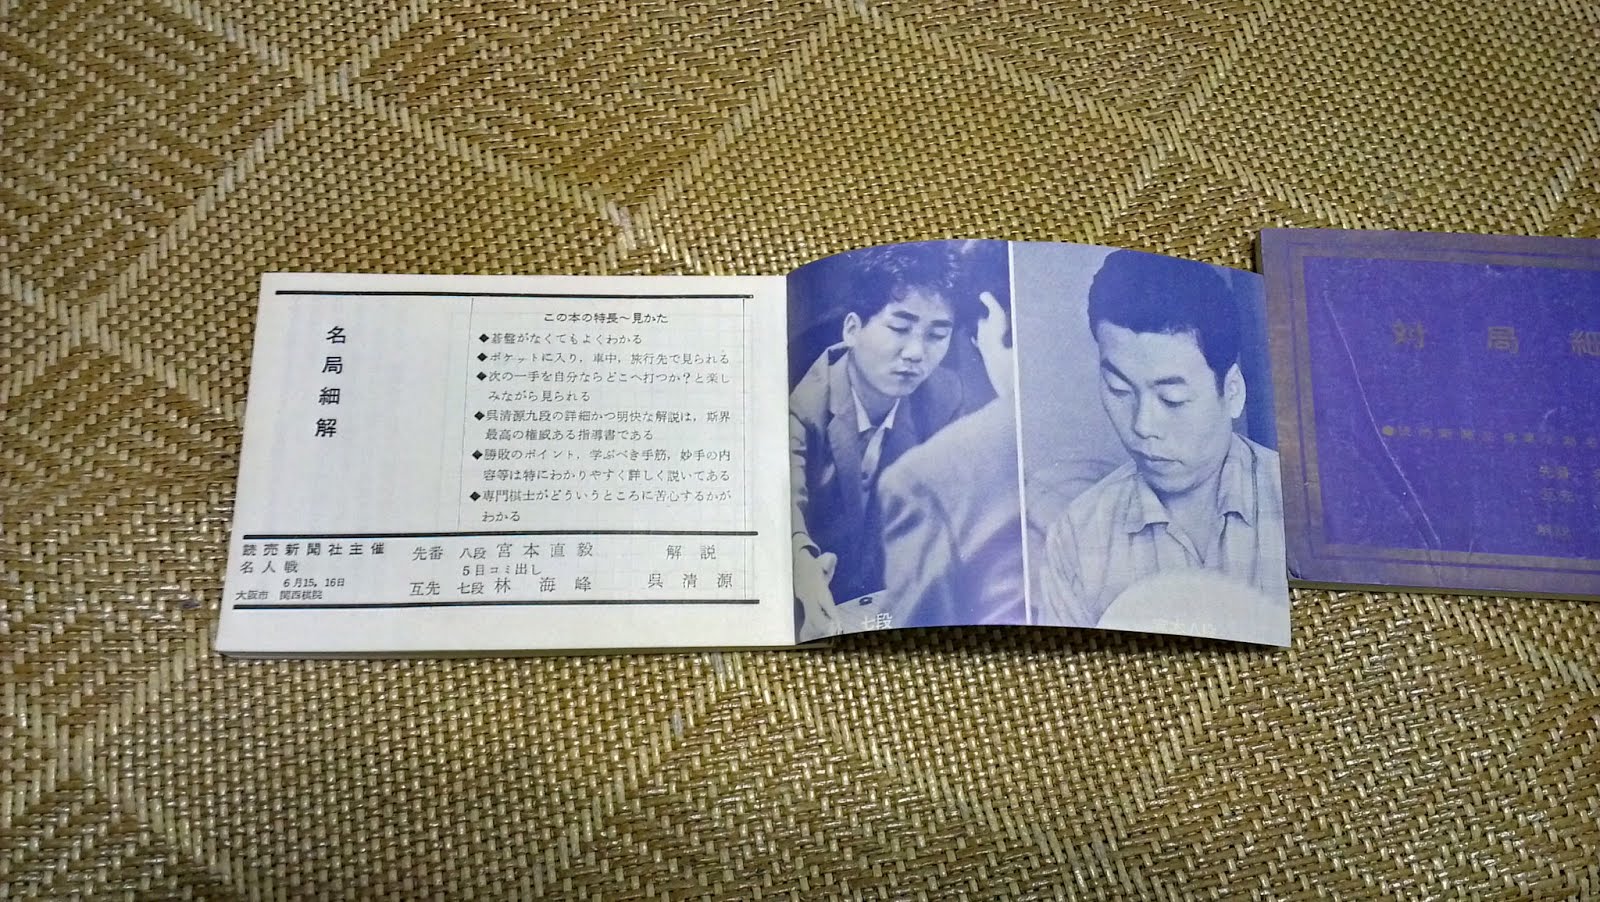 名局細解
この本の特長〜見かた
◆碁盤がなくてもよくわかる
◆ポケットに入り，車中，旅行先で見られる
◆次の一手を自分ならどこへ打つか？と楽し
みながら見られる
◆呉清源九段の詳細かつ明快な解説は，斯界
最高の権威ある指導書である
◆勝敗のポイント，学ぶべき手筋，妙手の内
容等は特にわかりやすく詳しく説いてある
◆専門棋士がどういうところに苦心するかが
わかる
読売新聞社主催
名人戦
6月15，16日
大阪市　関西棋院
先番　八段 宮本直毅
5目コミ出し
互先　七段 林海峰
解説
呉清源
七段
宮本八段
対局細
●読売新聞社
先番
互先
解説